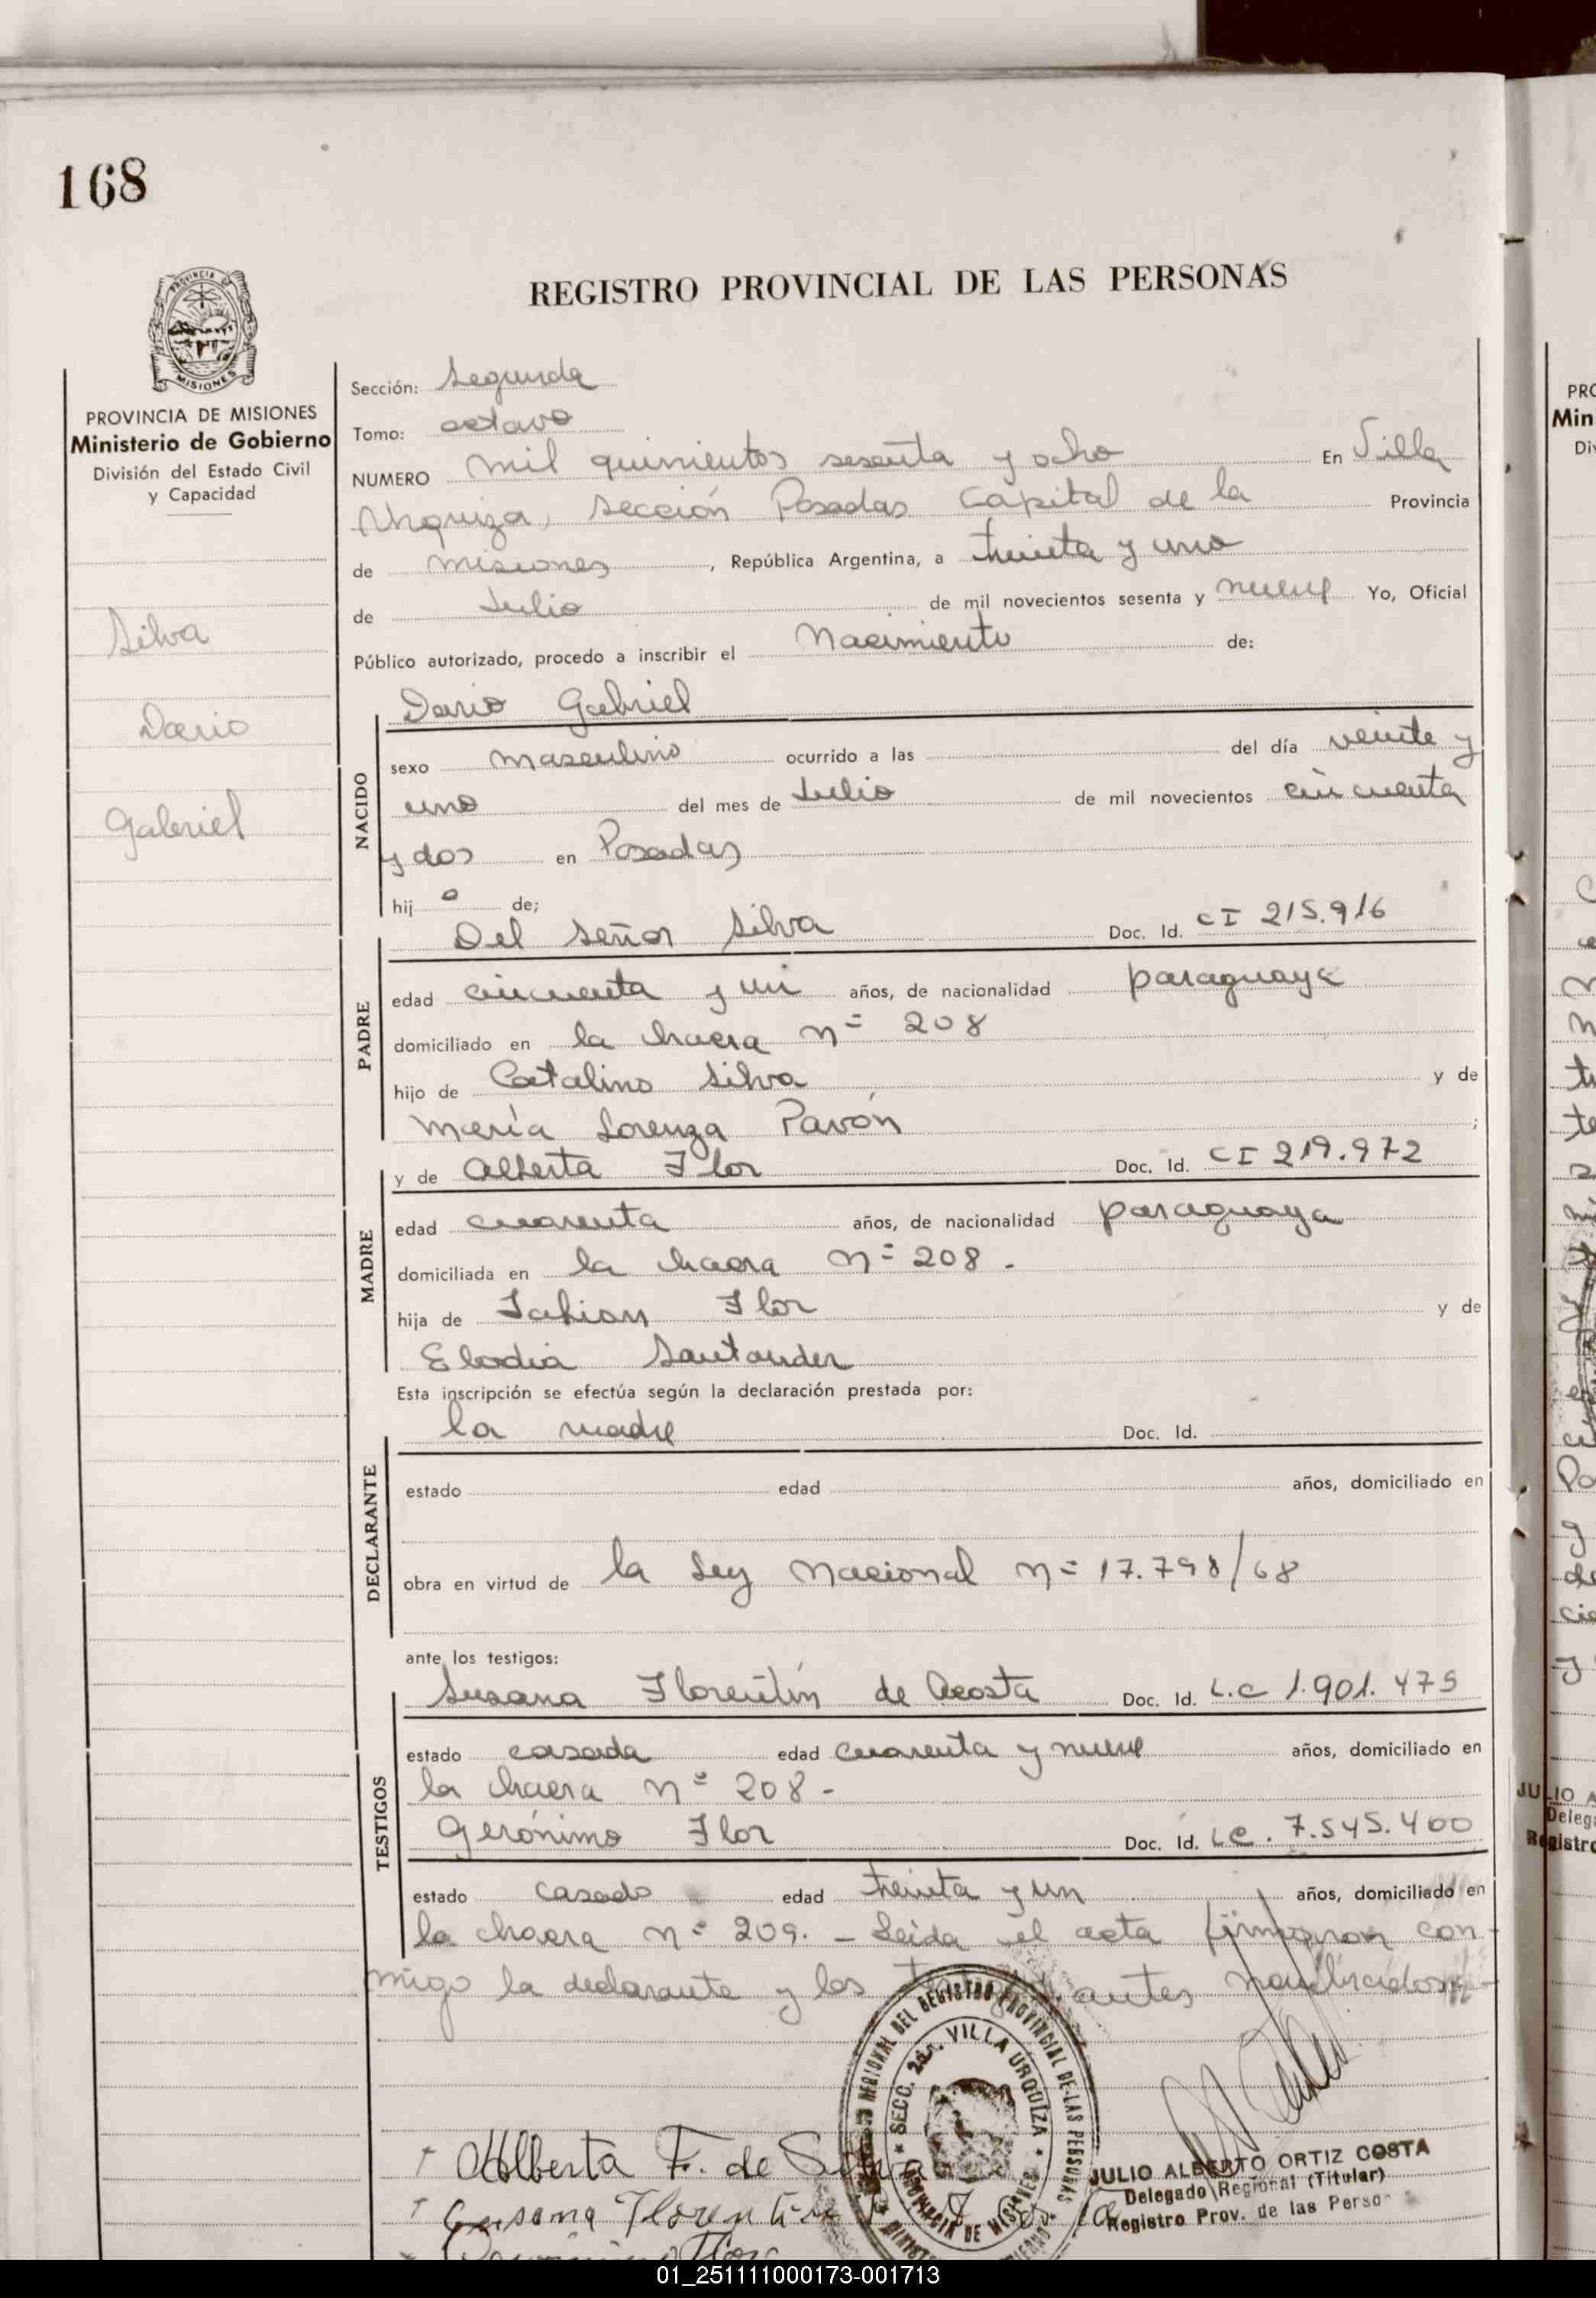 168
REGISTRO PROVINCIAL DE LAS PERSONAS
PROVINCIA
MISIONES
PROVINCIA DE MISIONES
Ministerio de Gobierno
División del Estado Civil
y Capacidad
Silva
Dario
Gabriel
Sección: Segunda
Tomo: octavo
NUMERO mil quinientos sesenta y ocho En Villa
Urquiza, sección Posadas Capital de la Provincia
de misiones, República Argentina, a treinta y uno
de Julio de mil novecientos sesenta y nueve Yo, Oficial
Público autorizado, procedo a inscribir el Nacimiento de:
NACIDO
Dario Gabriel
sexo masculino ocurrido a las del día veinte y
uno del mes de Julio de mil novecientos cincuenta
y dos en Posadas
hijo de;
PADRE
Del Señor Silva Doc. Id. CI 215.916
edad cincuenta y un años, de nacionalidad paraguaya
domiciliado en la chacra nº 208
hijo de Catalino Silva y de
María Lorenza Pavón ;
MADRE
y de Alberta Flor Doc. Id. CI 219.972
edad cuarenta años, de nacionalidad paraguaya
domiciliada en la chacra nº 208.-
hija de Flor y de
Elodia Santander
Esta inscripción se efectúa según la declaración prestada por:
DECLARANTE
la madre Doc. Id.
estado edad años, domiciliado en
obra en virtud de la Ley Nacional nº 17.798/68
ante los testigos:
TESTIGOS
Susana Florentín de Acosta Doc. Id. L.C 1.901.475
estado casada edad cuarenta y nueve años, domiciliado en
la chacra nº 208-
Gerónimo Flor Doc. Id. L.e. 7.545.400
estado casado edad treinta y un años, domiciliado en
la chacra nº 209.- Leida el acta firmaron con-
migo la declarante y los
REGIONAL DEL REGISTRO PROVINCIAL DE LAS PERSONAS
SECC. 2da. VILLA URQUIZA
PROVINCIA DE MISIONES
Alberta F. de Silva
Susana Florentin
JULIO ALBERTO ORTIZ COSTA
Delegado Regional (Titular)
Registro Prov. de las Perso
01_251111000173-001713